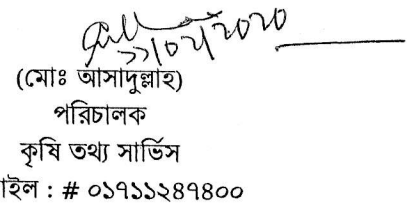 (মোঃ আসাদুল্লাহ)
পরিচালক
কৃষি তথ্য সার্ভিস
াইল : # ০১৭১১২৪৭৪০০